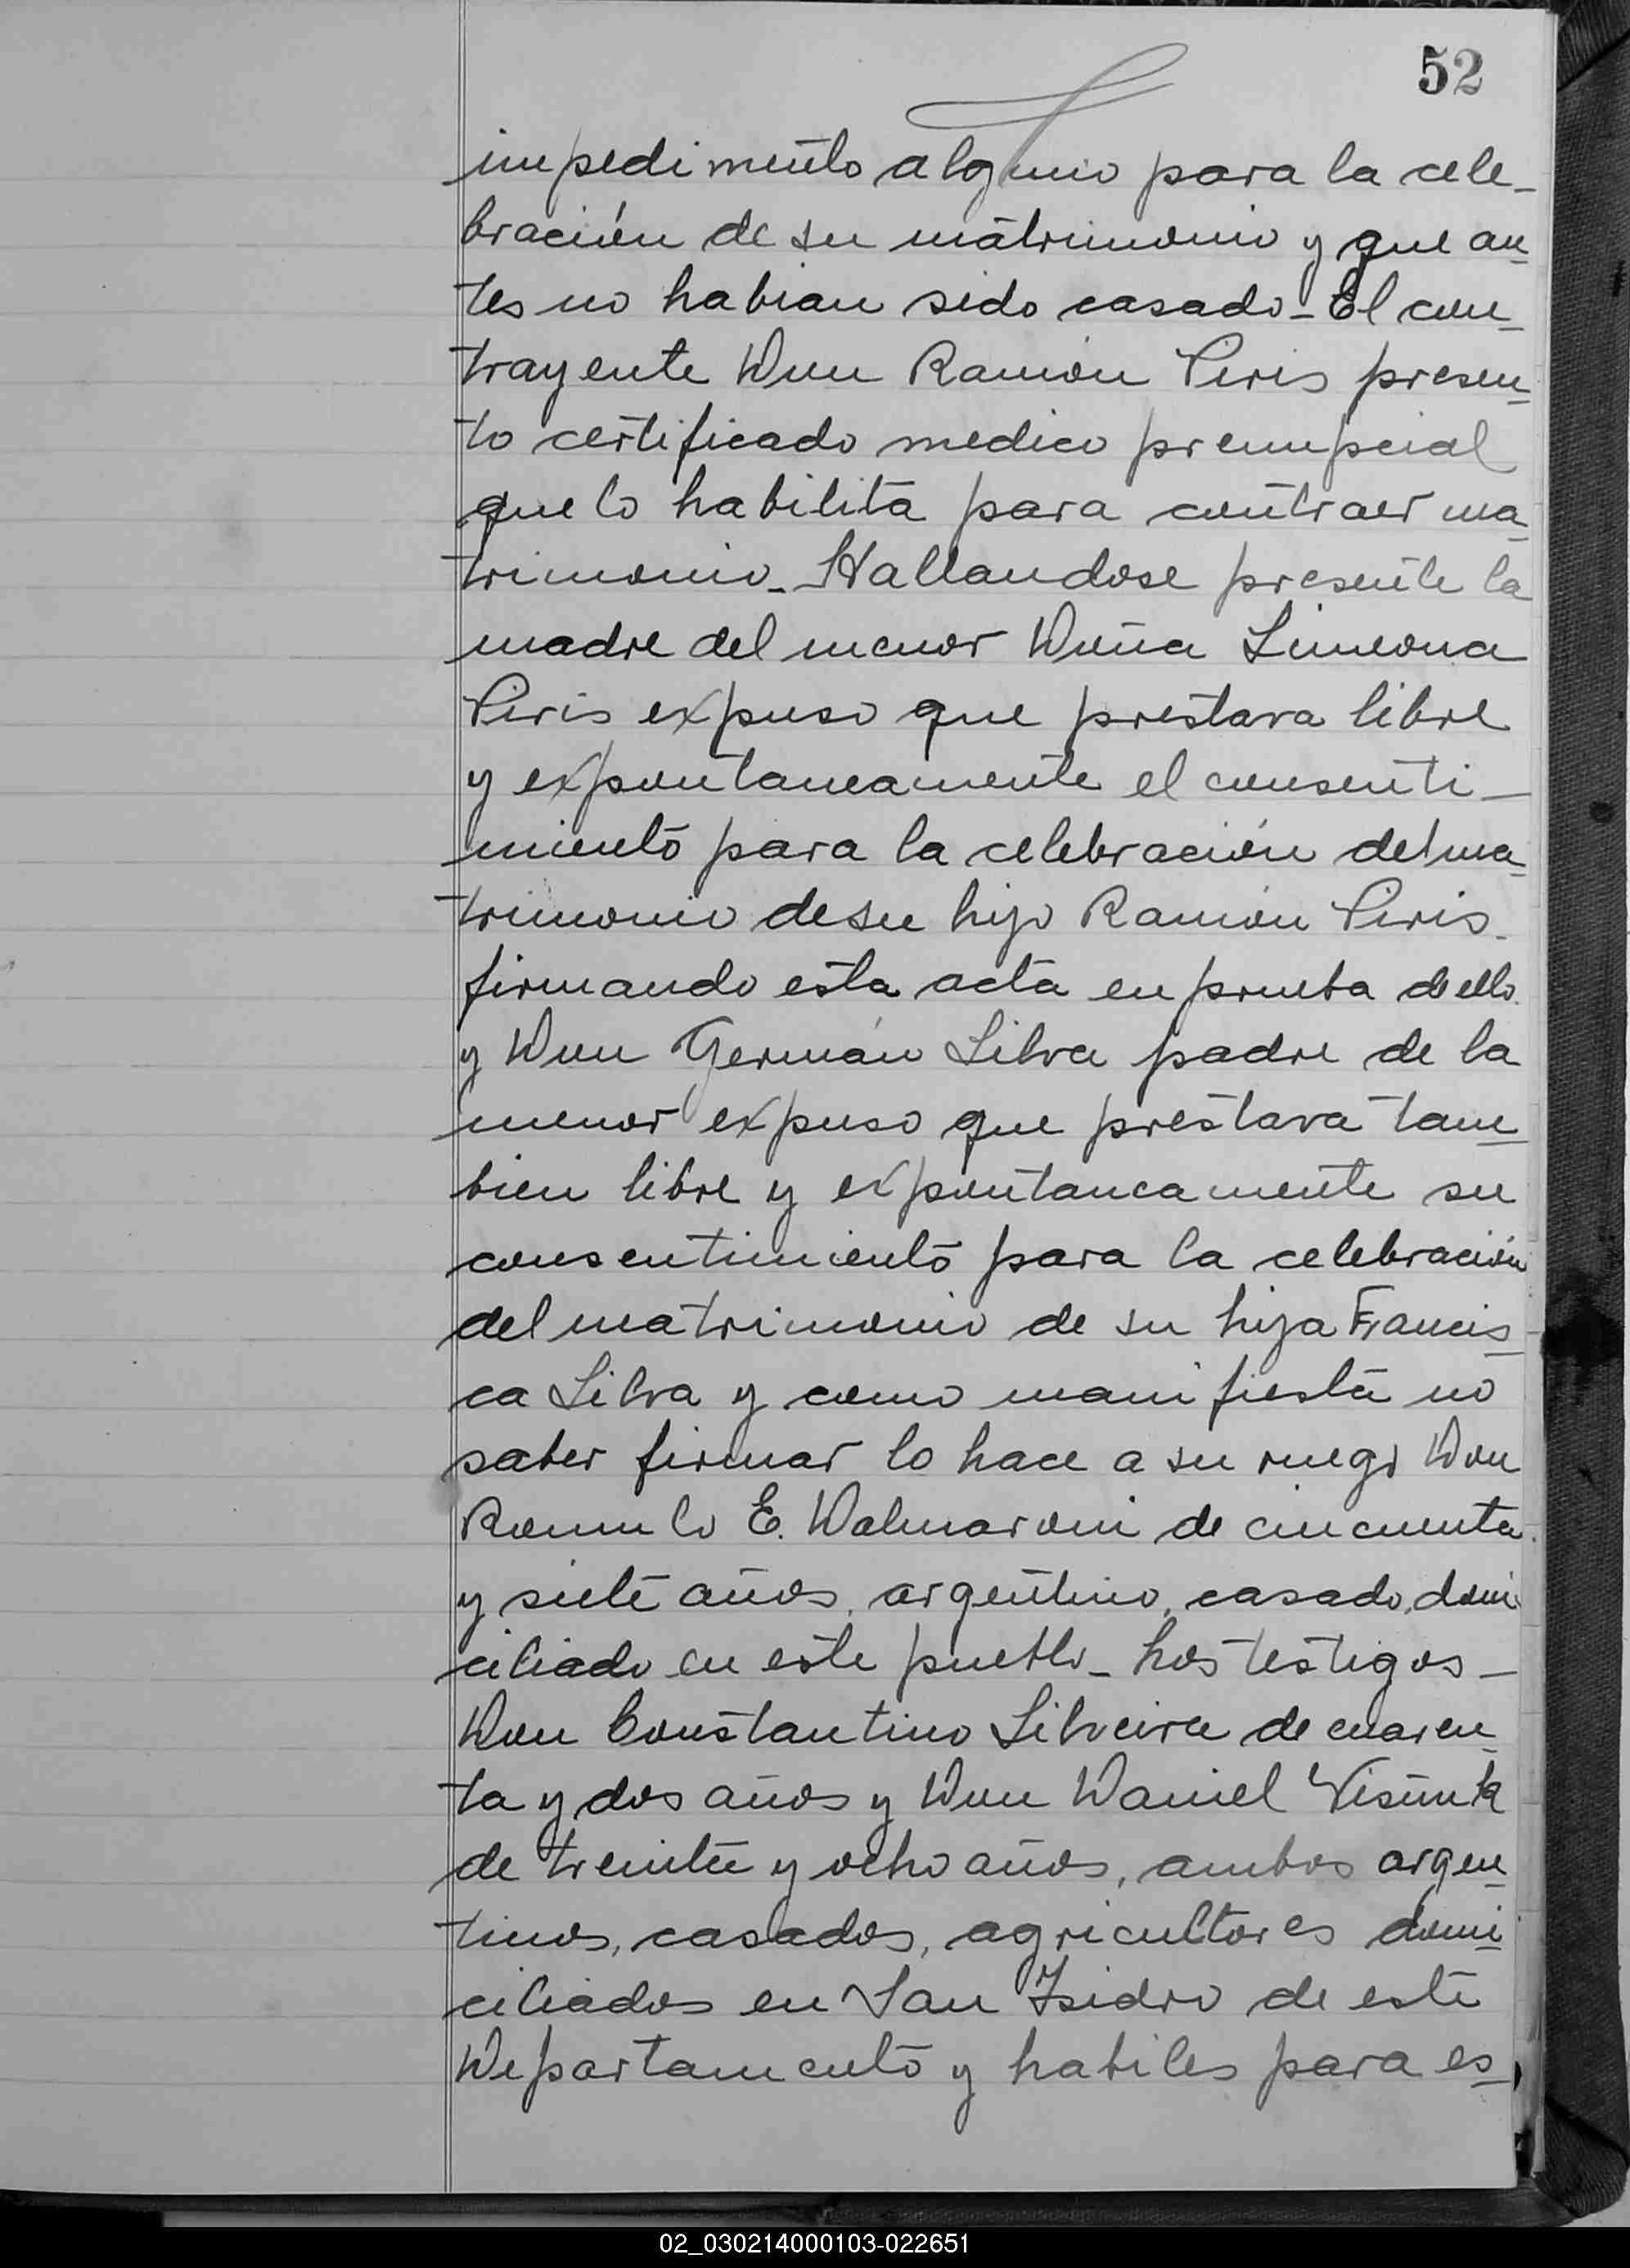 52
impedimento alguno para la cele-
bración de su matrimonio y que an-
tes no habian sido casado - El con-
trayente Don Ramón Piris presen-
to certificado medico prenupcial
que lo habilita para contraer ma-
trimonio - Hallandose presente la
madre del menor Doña Simeona
Piris expuso que prestava libre
y expontaneamente el consenti-
miento para la celebración del ma-
trimonio de su hijo Ramón Piris.
firmando esta acta en prueba de ello.
y Don Germán Silva padre de la
menor expuso que prestava tam-
bien libre y expontaneamente su
consentimiento para la celebración
del matrimonio de su hija Francis-
ca Silva y como manifiesta no
saber firmar lo hace a su ruego Don
Romulo E. Dalmaroni de cincuenta
y siete años, argentino, casado, domi
ciliado en este pueblo - Los testigos -
Don Constantino Silveira de cuaren-
ta y dos años y Don Daniel
de treinta y ocho años, ambos argen-
tinos, casados, agricultores domi-
ciliados en San Isidro de este
Departamento y habiles para es-
02_030214000103-022651